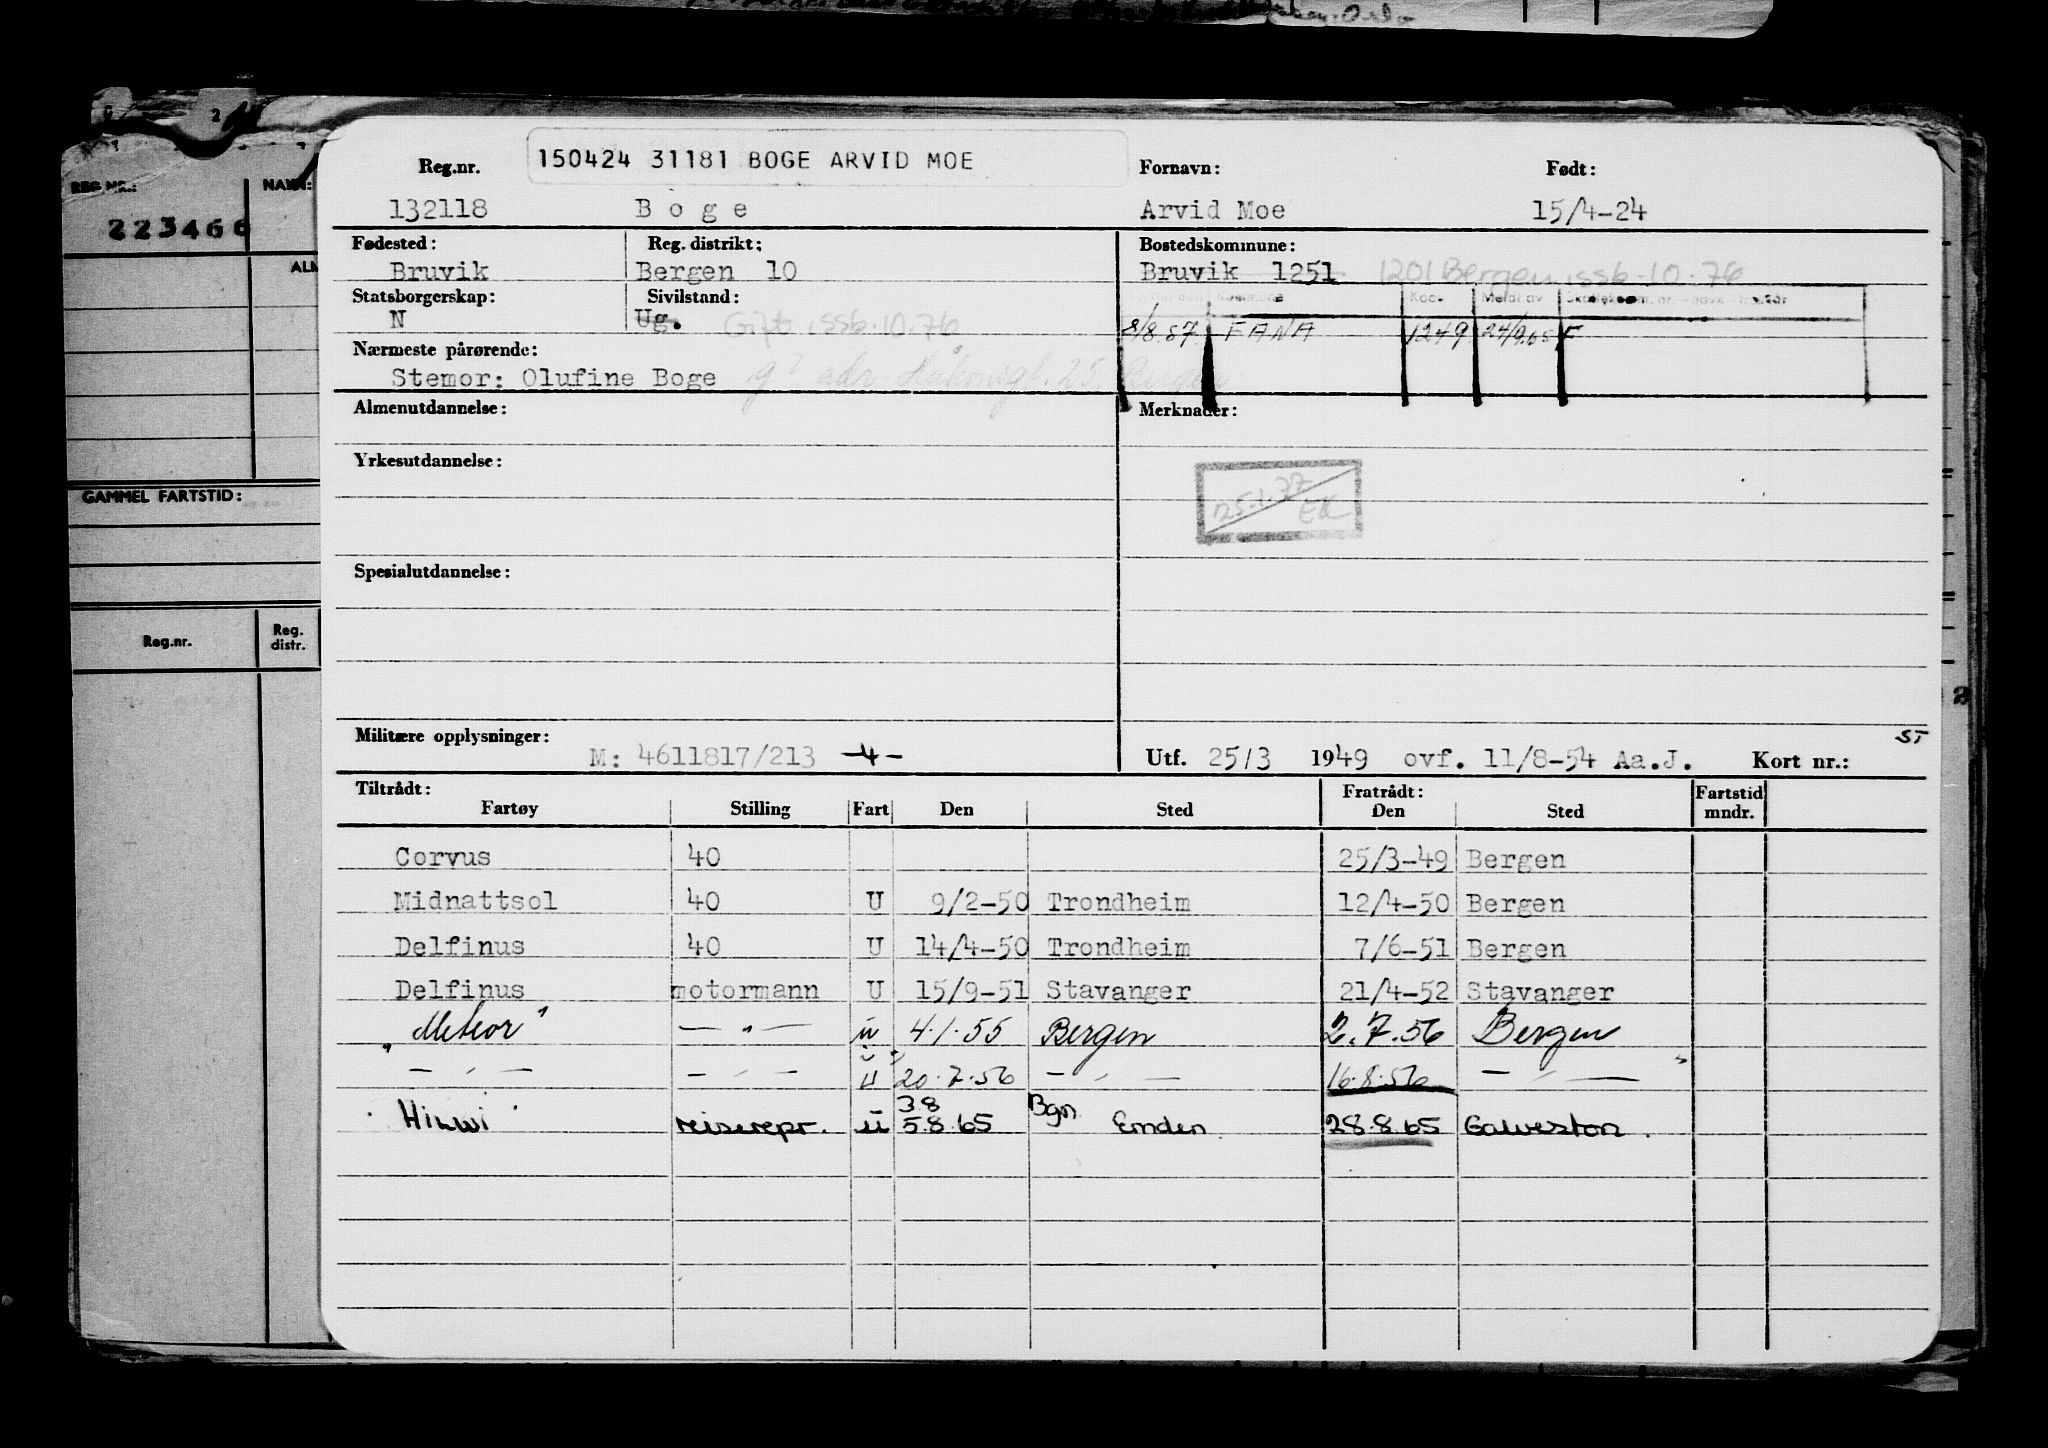 REG NR.: NAVN:
223466
ALM
GAMMEL FARTSTID:
Reg.nr. Reg. distr.
Reg.nr. 150424 31181 BOGE ARVID MOE Fornavn: Født:
132118 Boge Arvid Moe 15/4-24
Fødested: Reg. distrikt: Bostedskommune:
Bruvik Bergen 10 Bruvik 1251 1201 Bergen, ssb-10-76
Statsborgerskap: Sivilstand: Kommune Kode Meldt av
N Ug. Gift, ssb-10.76 8/8.57 FANA 1249 24/9.65 F
Nærmeste pårørende:
Stemor: Olufine Boge adr. 25, Bergen
Almenutdannelse: Merknader:
Yrkesutdannelse:
25.1.77 EK
Spesialutdannelse:
ST
Militære opplysninger: M: 4611817/213 -4- Utf. 25/3 1949 ovf. 11/8-54 Aa.J. Kort nr.:
Tiltrådt: Fratrådt: Fartstid
Fartøy Stilling Fart Den Sted Den Sted mndr.
Corvus 40 25/3-49 Bergen
Midnattsol 40 U 9/2-50 Trondheim 12/4-50 Bergen
Delfinus 40 U 14/4-50 Trondheim 7/6-51 Bergen
Delfinus motormann U 15/9-51 Stavanger 21/4-52 Stavanger
"Meteor" — " — u 4.1.55 Bergen 2.7.56 Bergen
— " — — " — u 20.7.56 — " — 16.8.56 — " —
3.8 Bgn
"Hilwi" reiserepr. u 5.8.65 Emden 28.8.65 Galveston.